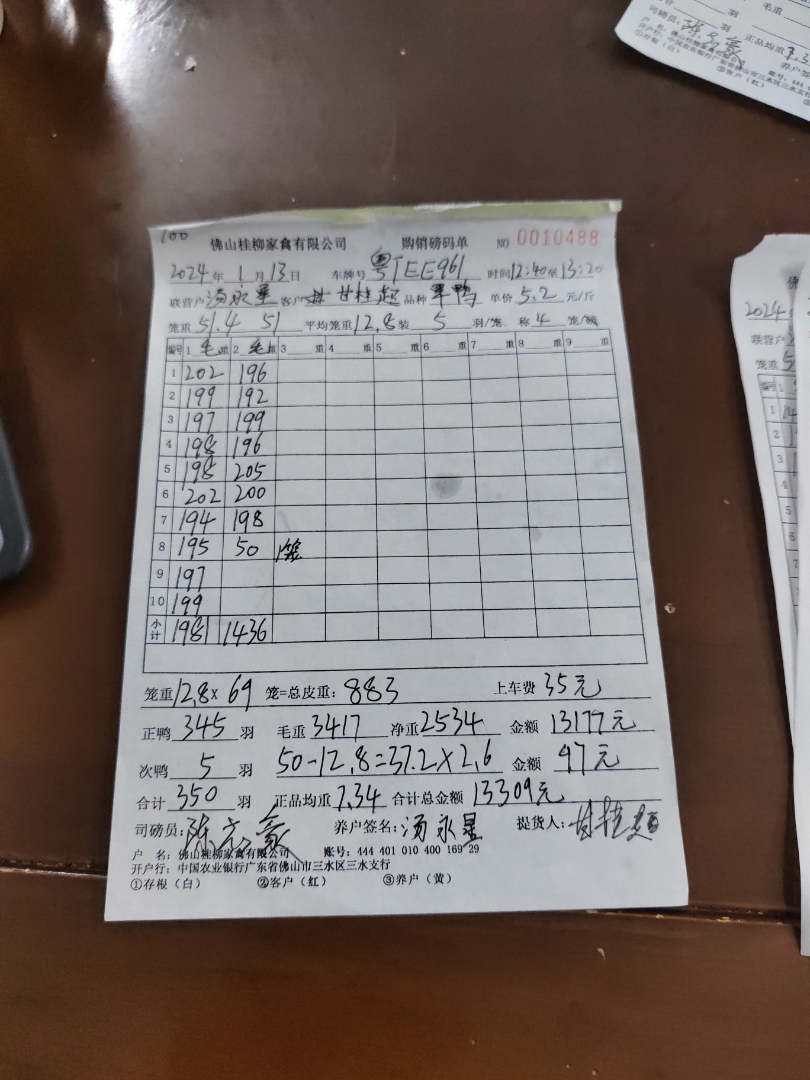 羽 毛重
司磅员: 正品均重 7.3
户 名: 佛山桂柳家禽有限
开户行: 中国农业银行广东省佛山市三水区三水支行
账号: 444 401
①存根（白） ②客户（红）
养户签
100
佛山桂柳家禽有限公司 购销磅码单 NO 0010488
2024年 1月 13日 车牌号 粤TEE961 时间12:40至13:20
联营户 汤永星 客户 甘桂超 品种 单价 5.2 元/斤
笼重 51.4 51 平均笼重 12.8 装 5 羽/笼 称 4 笼/磅
编号 1 毛重 2 毛重 3 重 4 重 5 重 6 重 7 重 8 重 9 重
1 202 196
2 199 192
3 197 199
4 198 196
5 198 205
6 202 200
7 194 198
8 195 50 1笼
9 197
10 199
小计 1981 1436
笼重 12.8 x 69 笼=总皮重: 883 上车费 35元
正鸭 345 羽 毛重 3417 净重 2534 金额 13177元
次鸭 5 羽 50-12.8=37.2×2.6 金额 97元
合计 350 羽 正品均重 7.34 合计总金额 13309元
司磅员: 养户签名: 汤永星 提货人: 甘桂超
户 名: 佛山桂柳家禽有限公司 账号: 444 401 010 400 169 29
开户行: 中国农业银行广东省佛山市三水区三水支行
①存根（白） ②客户（红） ③养户（黄）
2024
联营户
笼重 5
编号 1
1
2
3
4
5
6
7